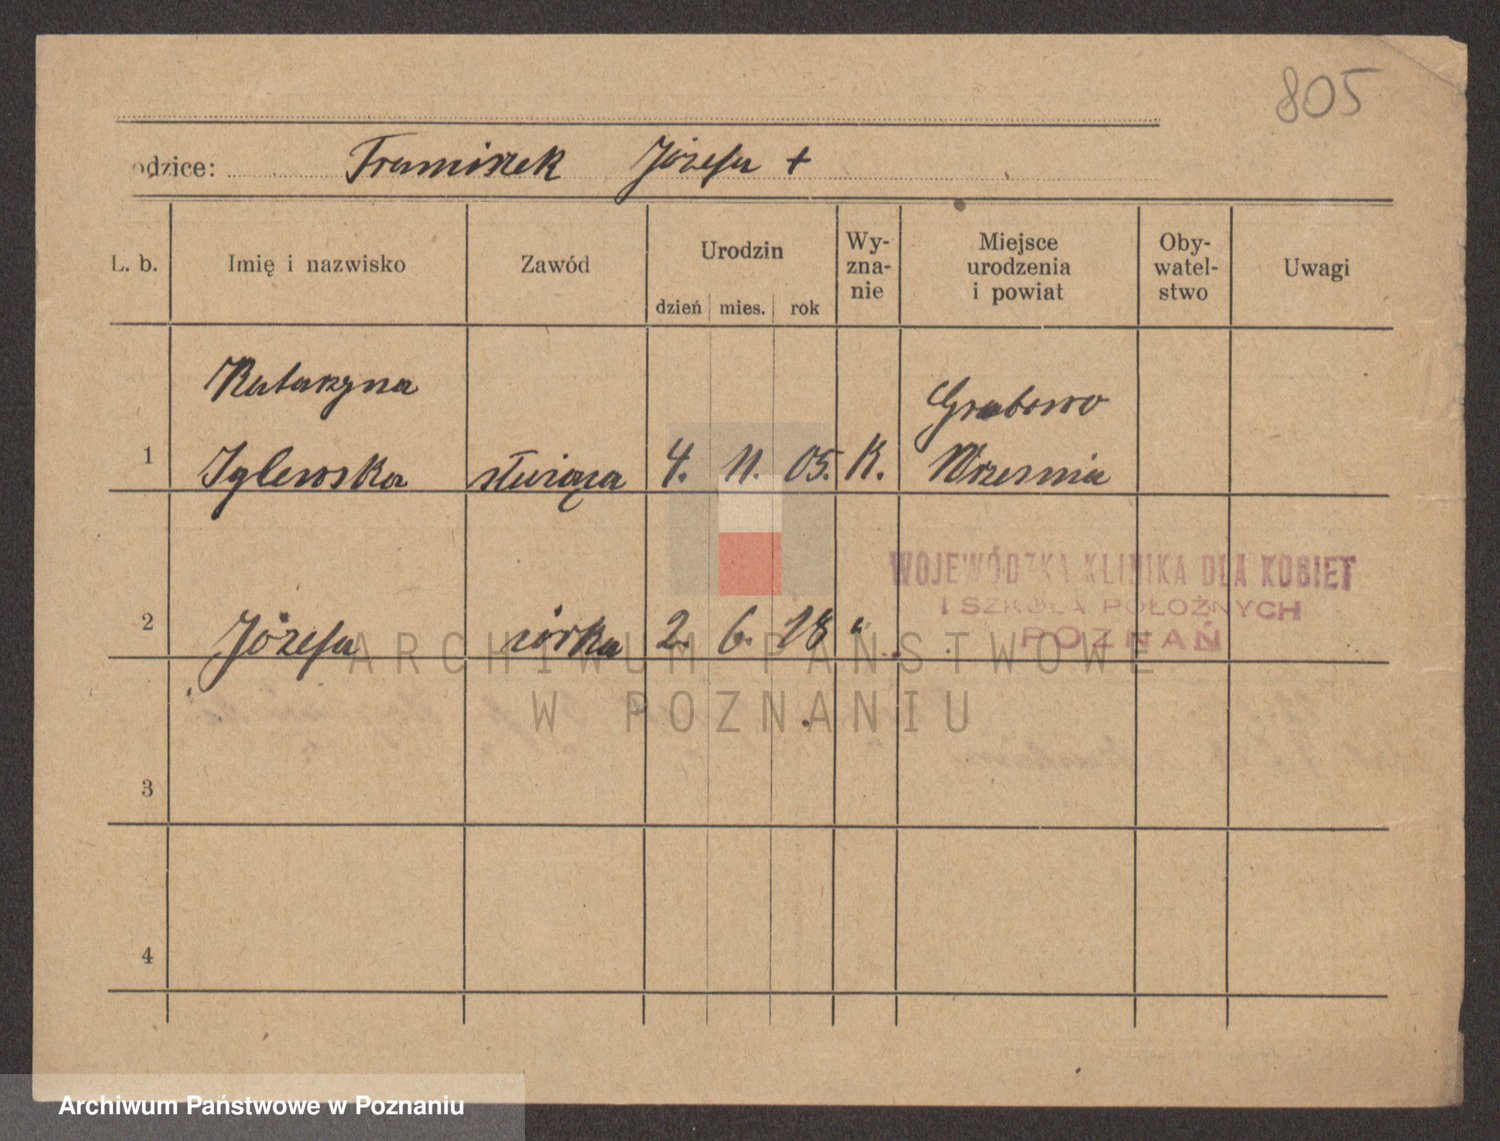 805
odzice: Franciszek Józefa +
L. b. Imię i nazwisko Zawód Urodzin Wy- Miejsce Oby- Uwagi
zna- urodzenia watel-
nie i powiat stwo
dzień mies. rok
Katarzyna Grabowo
1 Iglewska służąca 4. 11. 05. K. Września
WOJEWÓDZKA KLINIKA DLA KOBIET
I SZKOŁA POŁOŻNYCH
2 Józefa córka 2. 6. 28 "
POZNAŃ
ARCHIWUM PAŃSTWOWE
W POZNANIU
3
4
Archiwum Państwowe w Poznaniu